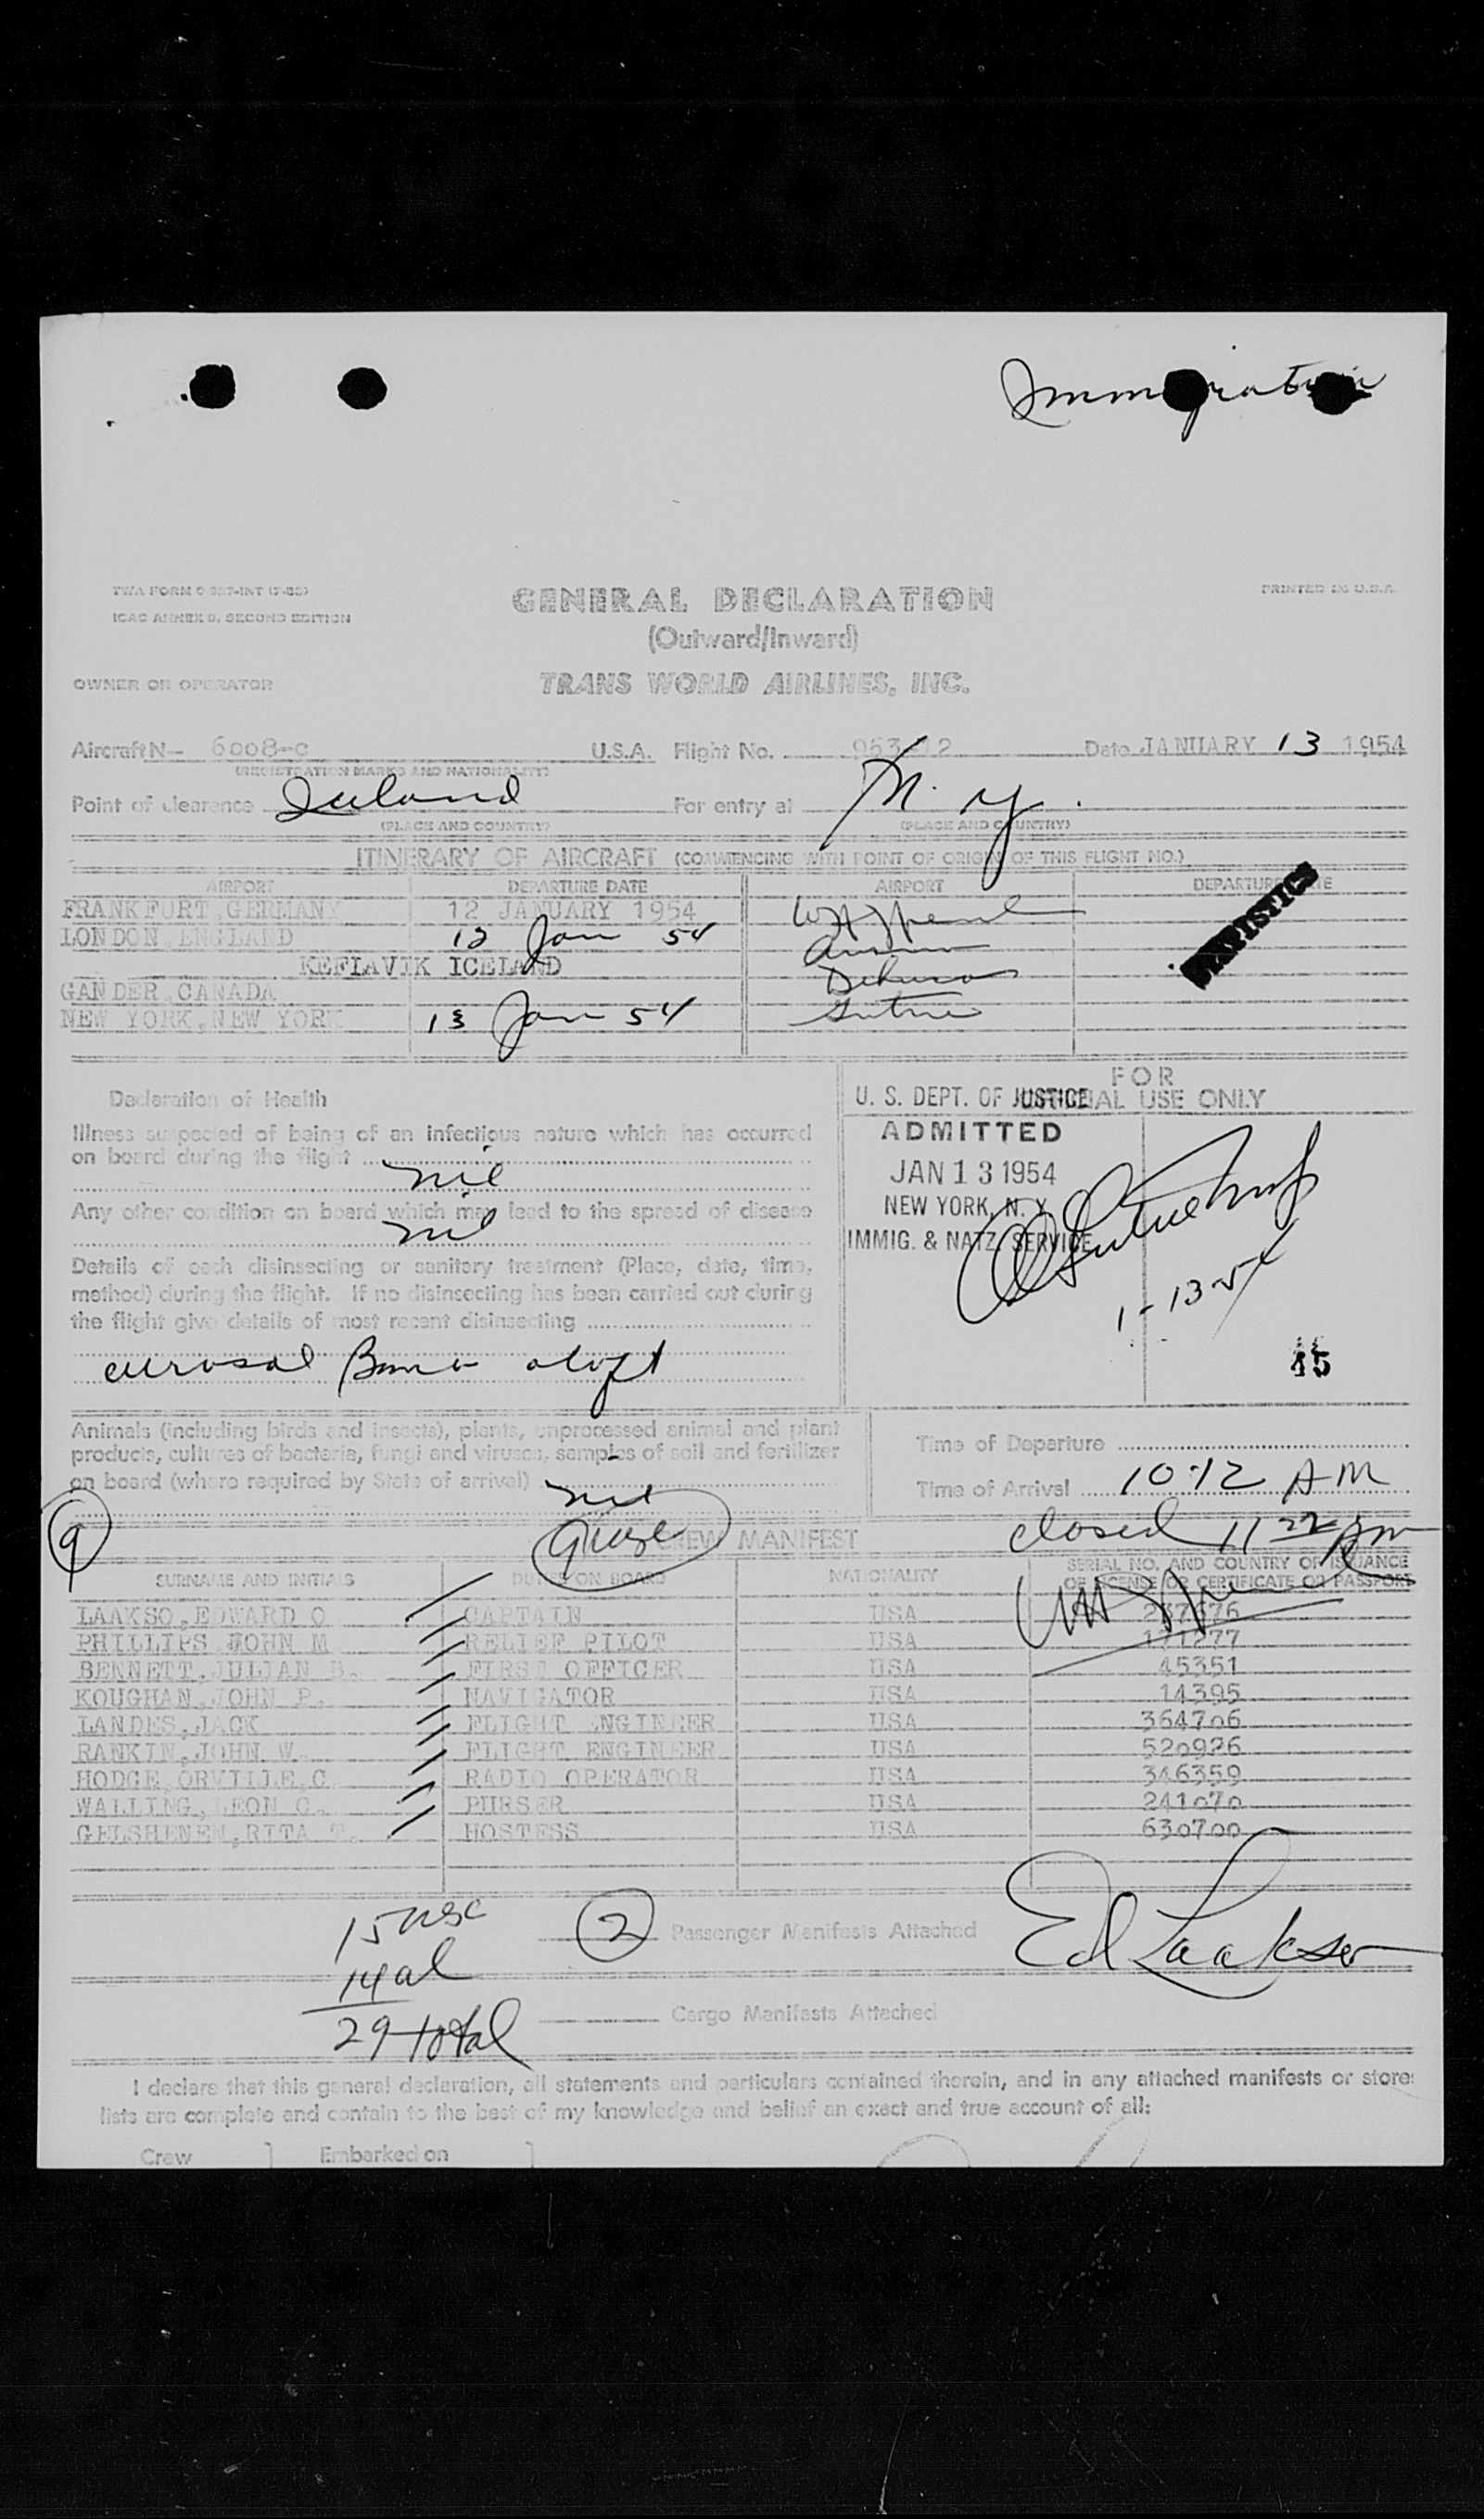 Immigration
TWA FORM
ICAO ANNEX 9, SECOND EDITION
PRINTED IN U.S.A.
GENERAL DECLARATION
(Outward/Inward)
OWNER OR OPERATOR
TRANS WORLD AIRLINES, INC.
Aircraft N- 6008-C U.S.A. Flight No. 953-12 Date JANUARY 13 1954
(REGISTRATION MARKS AND NATIONALITY)
Point of clearance Iceland For entry at N.Y.
(PLACE AND COUNTRY) (PLACE AND COUNTRY)
ITINERARY OF AIRCRAFT (COMMENCING WITH POINT OF ORIGIN OF THIS FLIGHT NO.)
AIRPORT DEPARTURE DATE AIRPORT DEPARTURE DATE
FRANKFURT, GERMANY 12 JANUARY 1954
LONDON ENGLAND 12 Jan 54
KEFLAVIK ICELAND
GANDER CANADA
NEW YORK, NEW YORK 13 Jan 54
STATISTICS
Declaration of Health
Illness suspected of being of an infectious nature which has occurred
on board during the flight
nil
Any other condition on board which may lead to the spread of disease
nil
Details of each disinsecting or sanitary treatment (Place, date, time,
method) during the flight. If no disinsecting has been carried out during
the flight give details of most recent disinsecting
aerosol Bomb aloft
FOR
OFFICIAL USE ONLY
U. S. DEPT. OF JUSTICE
ADMITTED
JAN 13 1954
NEW YORK, N. Y.
IMMIG. & NATZ. SERVICE
1-13-54
15
Animals (including birds and insects), plants, unprocessed animal and plant
products, cultures of bacteria, fungi and viruses, samples of soil and fertilizer
on board (where required by State of arrival)
nil
Time of Departure
Time of Arrival 10:12 AM
closed 11 22 Am
9
9 usc
CREW MANIFEST
SURNAME AND INITIALS DUTIES ON BOARD NATIONALITY SERIAL NO. AND COUNTRY OF ISSUANCE
OF LICENSE OR CERTIFICATE OR PASSPORT
LAAKSO, EDWARD O CAPTAIN USA
PHILLIPS JOHN M RELIEF PILOT USA 171277
BENNETT, JULIAN B. FIRST OFFICER USA 45351
KOUGHAN, JOHN P. NAVIGATOR USA 14395
LANDES, JACK FLIGHT ENGINEER USA 364706
RANKIN, JOHN W. FLIGHT ENGINEER USA 520926
HODGE ORVILLE C. RADIO OPERATOR USA 346359
WALLING, LEON C. PURSER USA 241070
GELSHENEN, RITA T. HOSTESS USA 630700
15 usc
14 al
29 total
2 Passenger Manifests Attached
Ed Laakso
Cargo Manifests Attached
I declare that this general declaration, all statements and particulars contained therein, and in any attached manifests or stores
lists are complete and contain to the best of my knowledge and belief an exact and true account of all:
Crew ] Embarked on ]